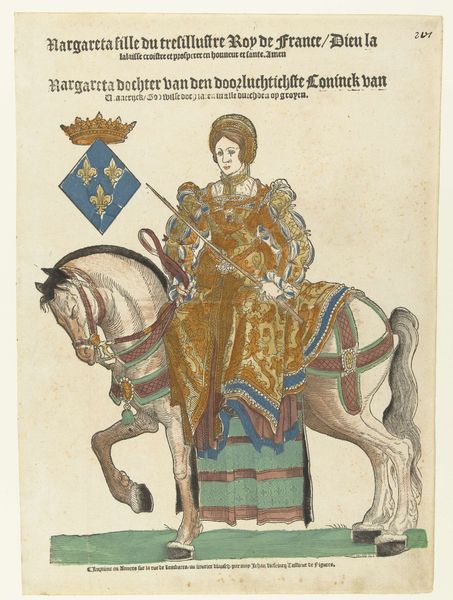 Margareta fille du tresillustre Roy de France/Dieu la
laiusse croistre et prosperer en honneur et sante. Amen
201
Margareta dochter van den doorluchtichste Coninck van
Vrancrijck/God wilse doch laten in alle duechden op groyen.
C Imprime en Anvers sur la rue de Lombaers/au leurier blancq/par moy Jehan de Tailleur de Figures.